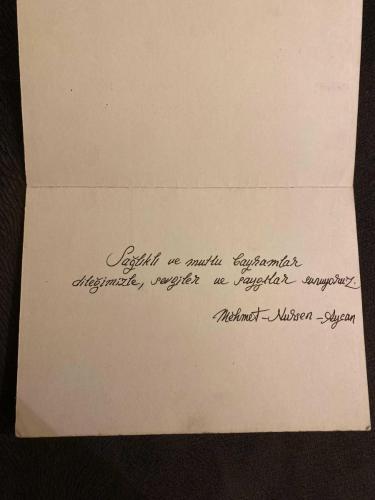 Sağlıklı ve mutlu bayramlar
dileğimizle, sevgiler ve saygılar sunuyoruz.
Mehmet-Nurşen-Aycan